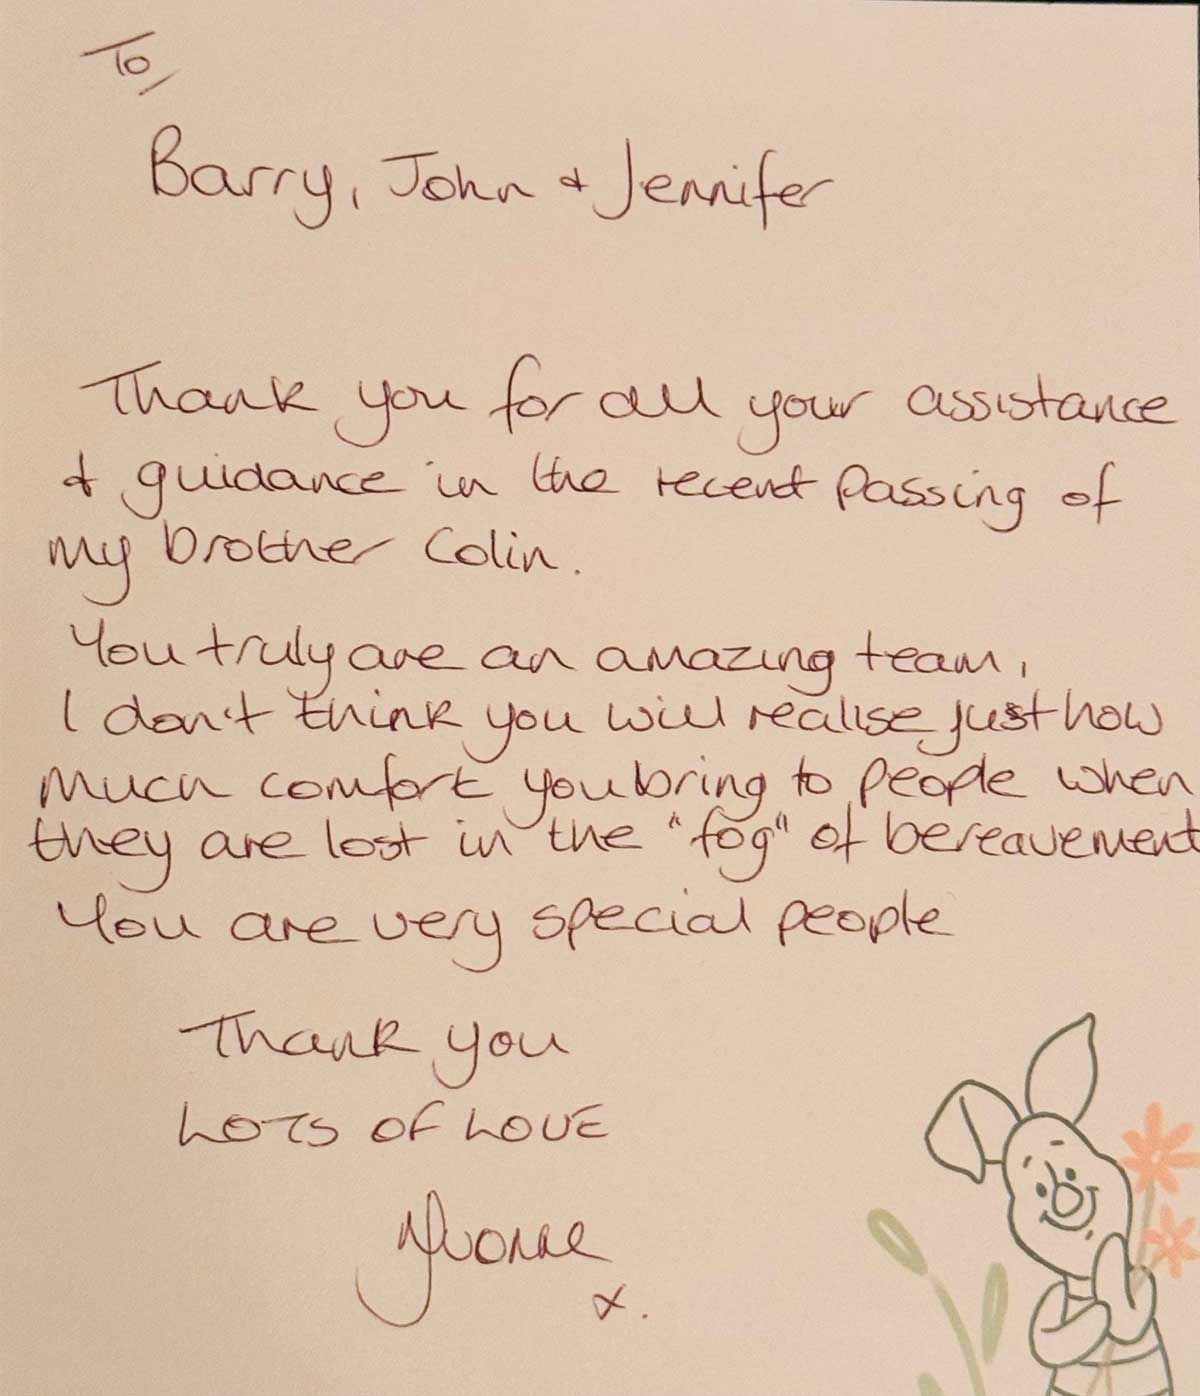 To/
Barry, John & Jennifer
Thank you for all your assistance
& guidance in the recent passing of
my brother Colin.
You truly are an amazing team,
I don't think you will realise just how
much comfort you bring to people when
they are lost in the "fog" of bereavement
You are very special people
Thank you
LOTS OF LOVE
Yvonne
x.